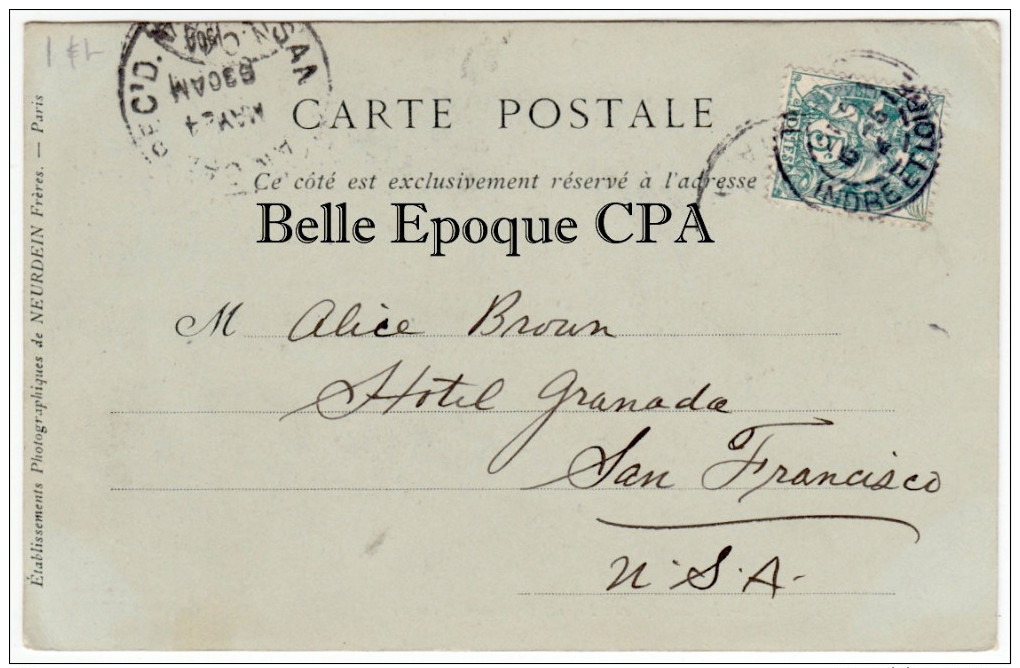 1 €L
REC'D.
SAN
1900
830AM
MAY 24
CARTE POSTALE
POSTES
5
INDRE ET LOIRE
Ce côté est exclusivement réservé à l'adresse
Belle Epoque CPA
M Alice Brown
Hotel Granada
San Francisco
U.S.A.
Établissements Photographiques de NEURDEIN Frères. — Paris